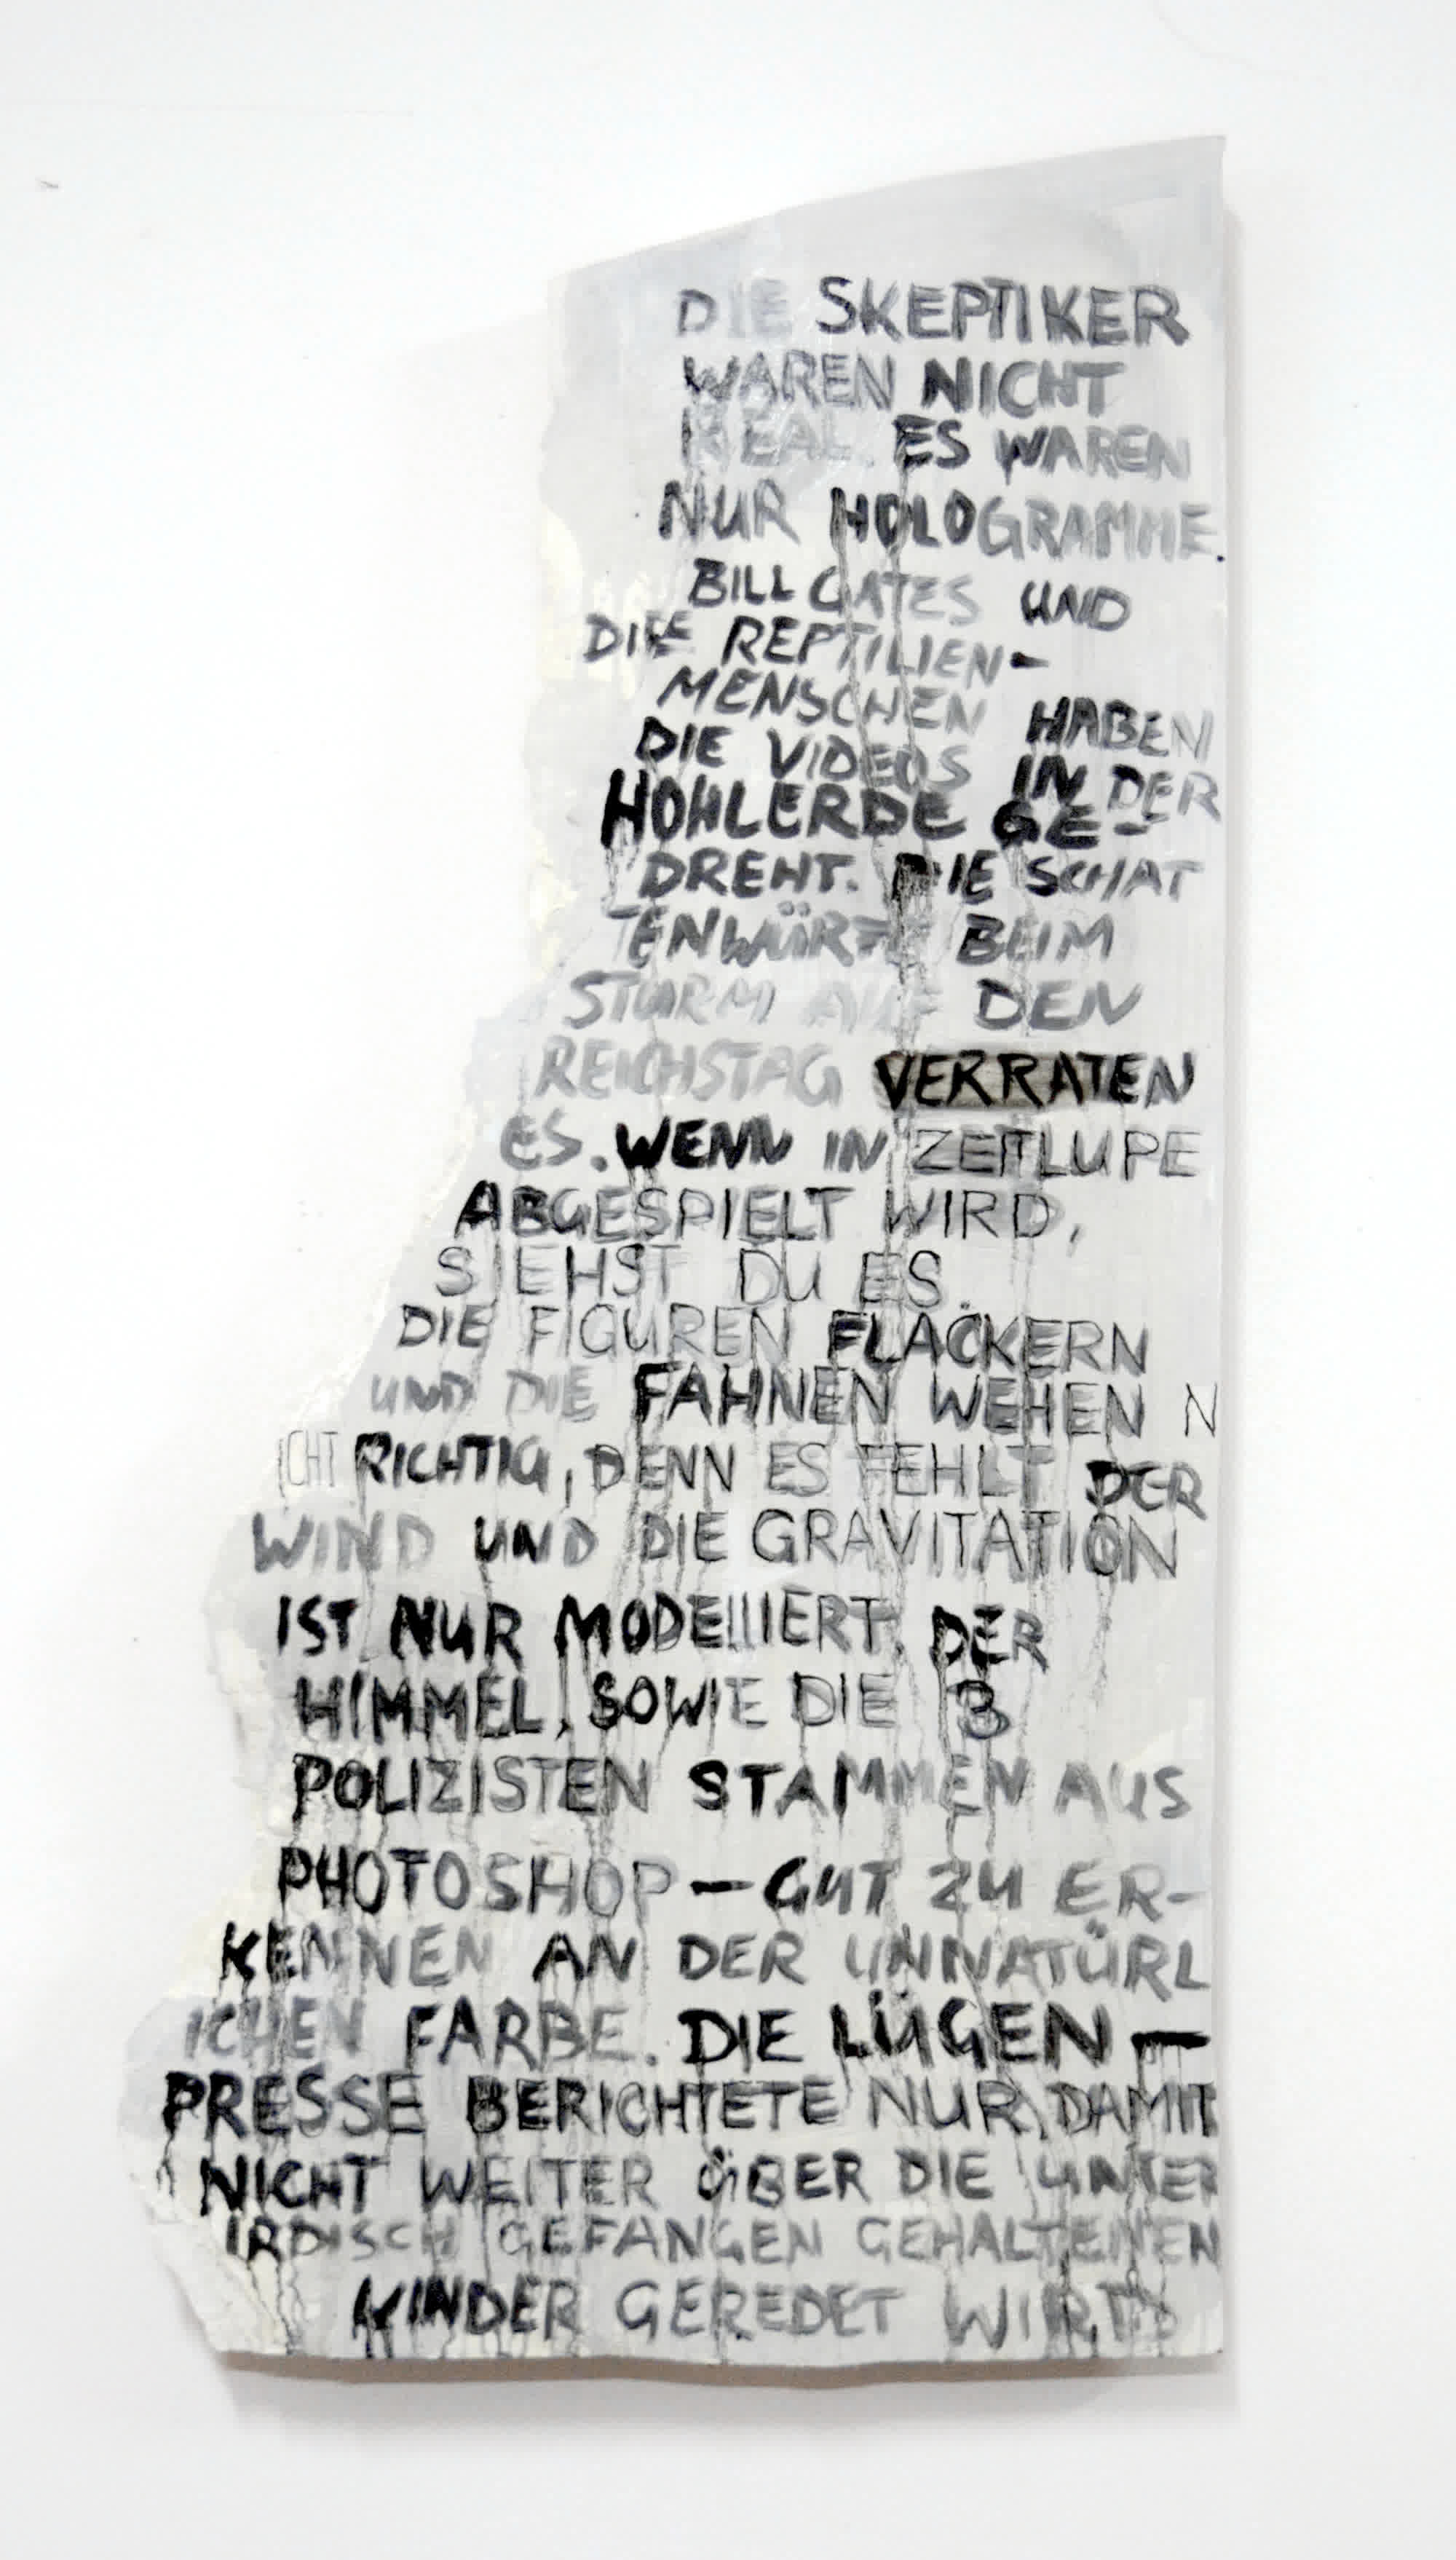 DIE SKEPTIKER
WAREN NICHT
REAL. ES WAREN
NUR HOLOGRAMME.
BILL GATES UND
DIE REPTILIEN-
MENSCHEN HABEN
DIE VIDEOS IN DER
HOHLERDE GE-
DREHT. DIE SCHAT
TENWÜRFE BEIM
STURM AUF DEN
REICHSTAG VERRATEN
ES. WENN IN ZEITLUPE
ABGESPIELT WIRD,
SIEHST DU ES.
DIE FIGUREN FLACKERN
UND DIE FAHNEN WEHEN N
ICHT RICHTIG, DENN ES FEHLT DER
WIND UND DIE GRAVITATION
IST NUR MODELLIERT. DER
HIMMEL, SOWIE DIE 3
POLIZISTEN STAMMEN AUS
PHOTOSHOP – GUT ZU ER-
KENNEN AN DER UNNATÜRL
ICHEN FARBE. DIE LÜGEN –
PRESSE BERICHTETE NUR, DAMIT
NICHT WEITER ÜBER DIE UNTER
IRDISCH GEFANGEN GEHALTENEN
KINDER GEREDET WIRD